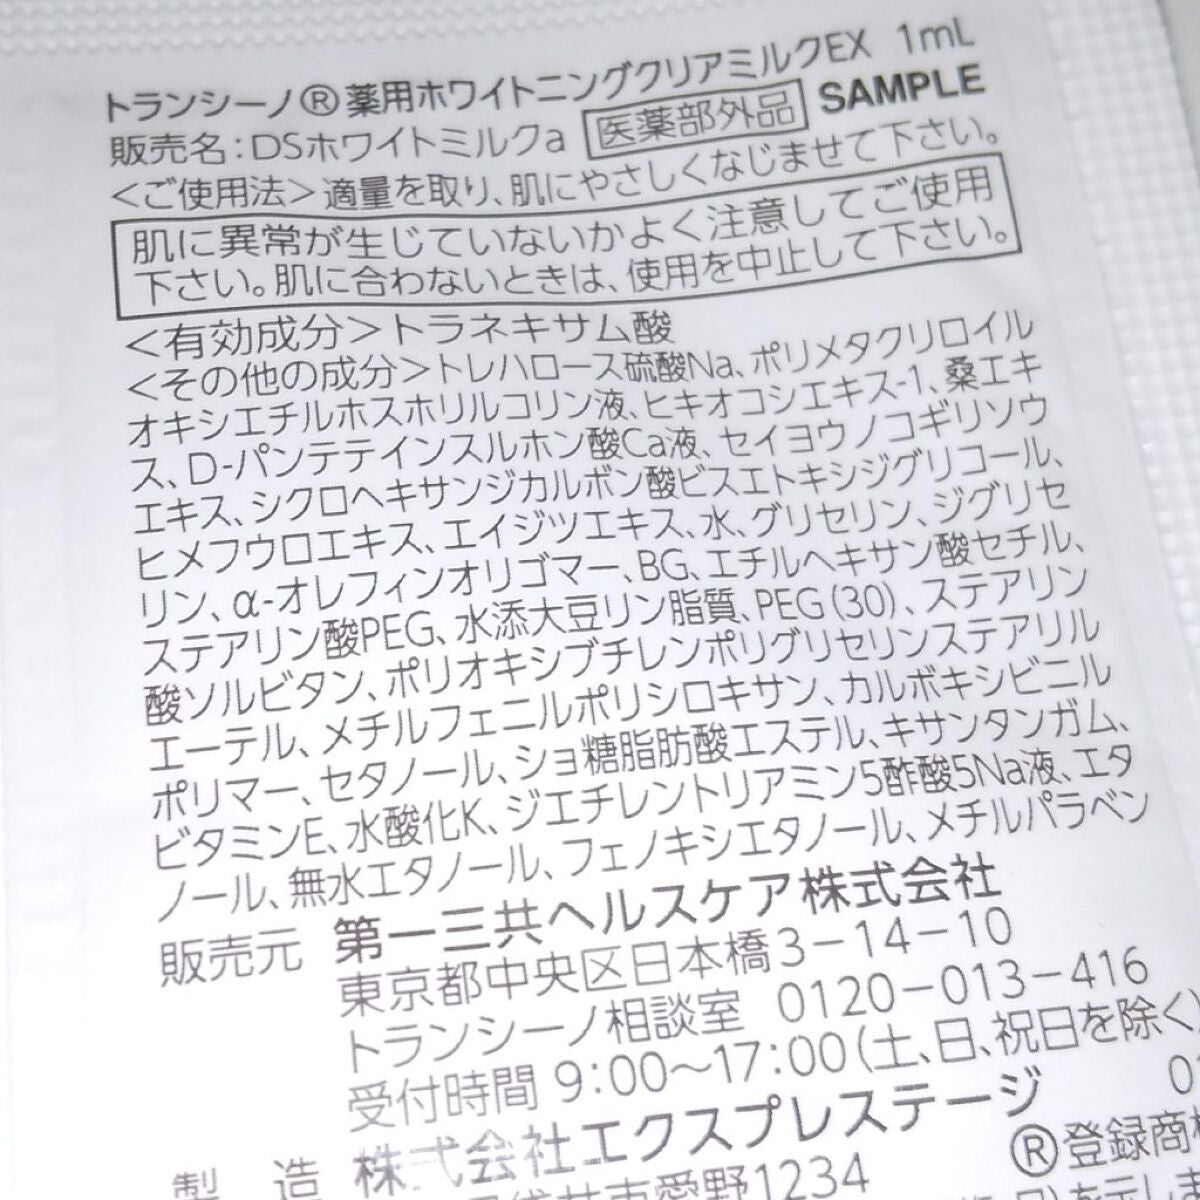 トランシーノ®薬用ホワイトニングクリアミルクEX 1mL
販売名:DSホワイトミルクa 医薬部外品 SAMPLE
<ご使用法>適量を取り、肌にやさしくなじませて下さい。
肌に異常が生じていないかよく注意してご使用
下さい。肌に合わないときは、使用を中止して下さい。
<有効成分>トラネキサム酸
<その他の成分>トレハロース硫酸Na、ポリメタクリロイル
オキシエチルホスホリルコリン液、ヒキオコシエキス-1、桑エキ
ス、D-パンテテインスルホン酸Ca液、セイヨウノコギリソウ
エキス、シクロヘキサンジカルボン酸ビスエトキシジグリコール、
ヒメフウロエキス、エイジツエキス、水、グリセリン、ジグリセ
リン、α-オレフィンオリゴマー、BG、エチルヘキサン酸セチル、
ステアリン酸PEG、水添大豆リン脂質、PEG(30)、ステアリン
酸ソルビタン、ポリオキシブチレンポリグリセリンステアリル
エーテル、メチルフェニルポリシロキサン、カルボキシビニル
ポリマー、セタノール、ショ糖脂肪酸エステル、キサンタンガム、
ビタミンE、水酸化K、ジエチレントリアミン5酢酸5Na液、エタ
ノール、無水エタノール、フェノキシエタノール、メチルパラベン
販売元 第一三共ヘルスケア株式会社
東京都中央区日本橋3-14-10
トランシーノ相談室 0120-013-416
受付時間 9:00～17:00(土、日、祝日を除く)
製 造 株式会社エクスプレステージ
市愛野1234
®登録商